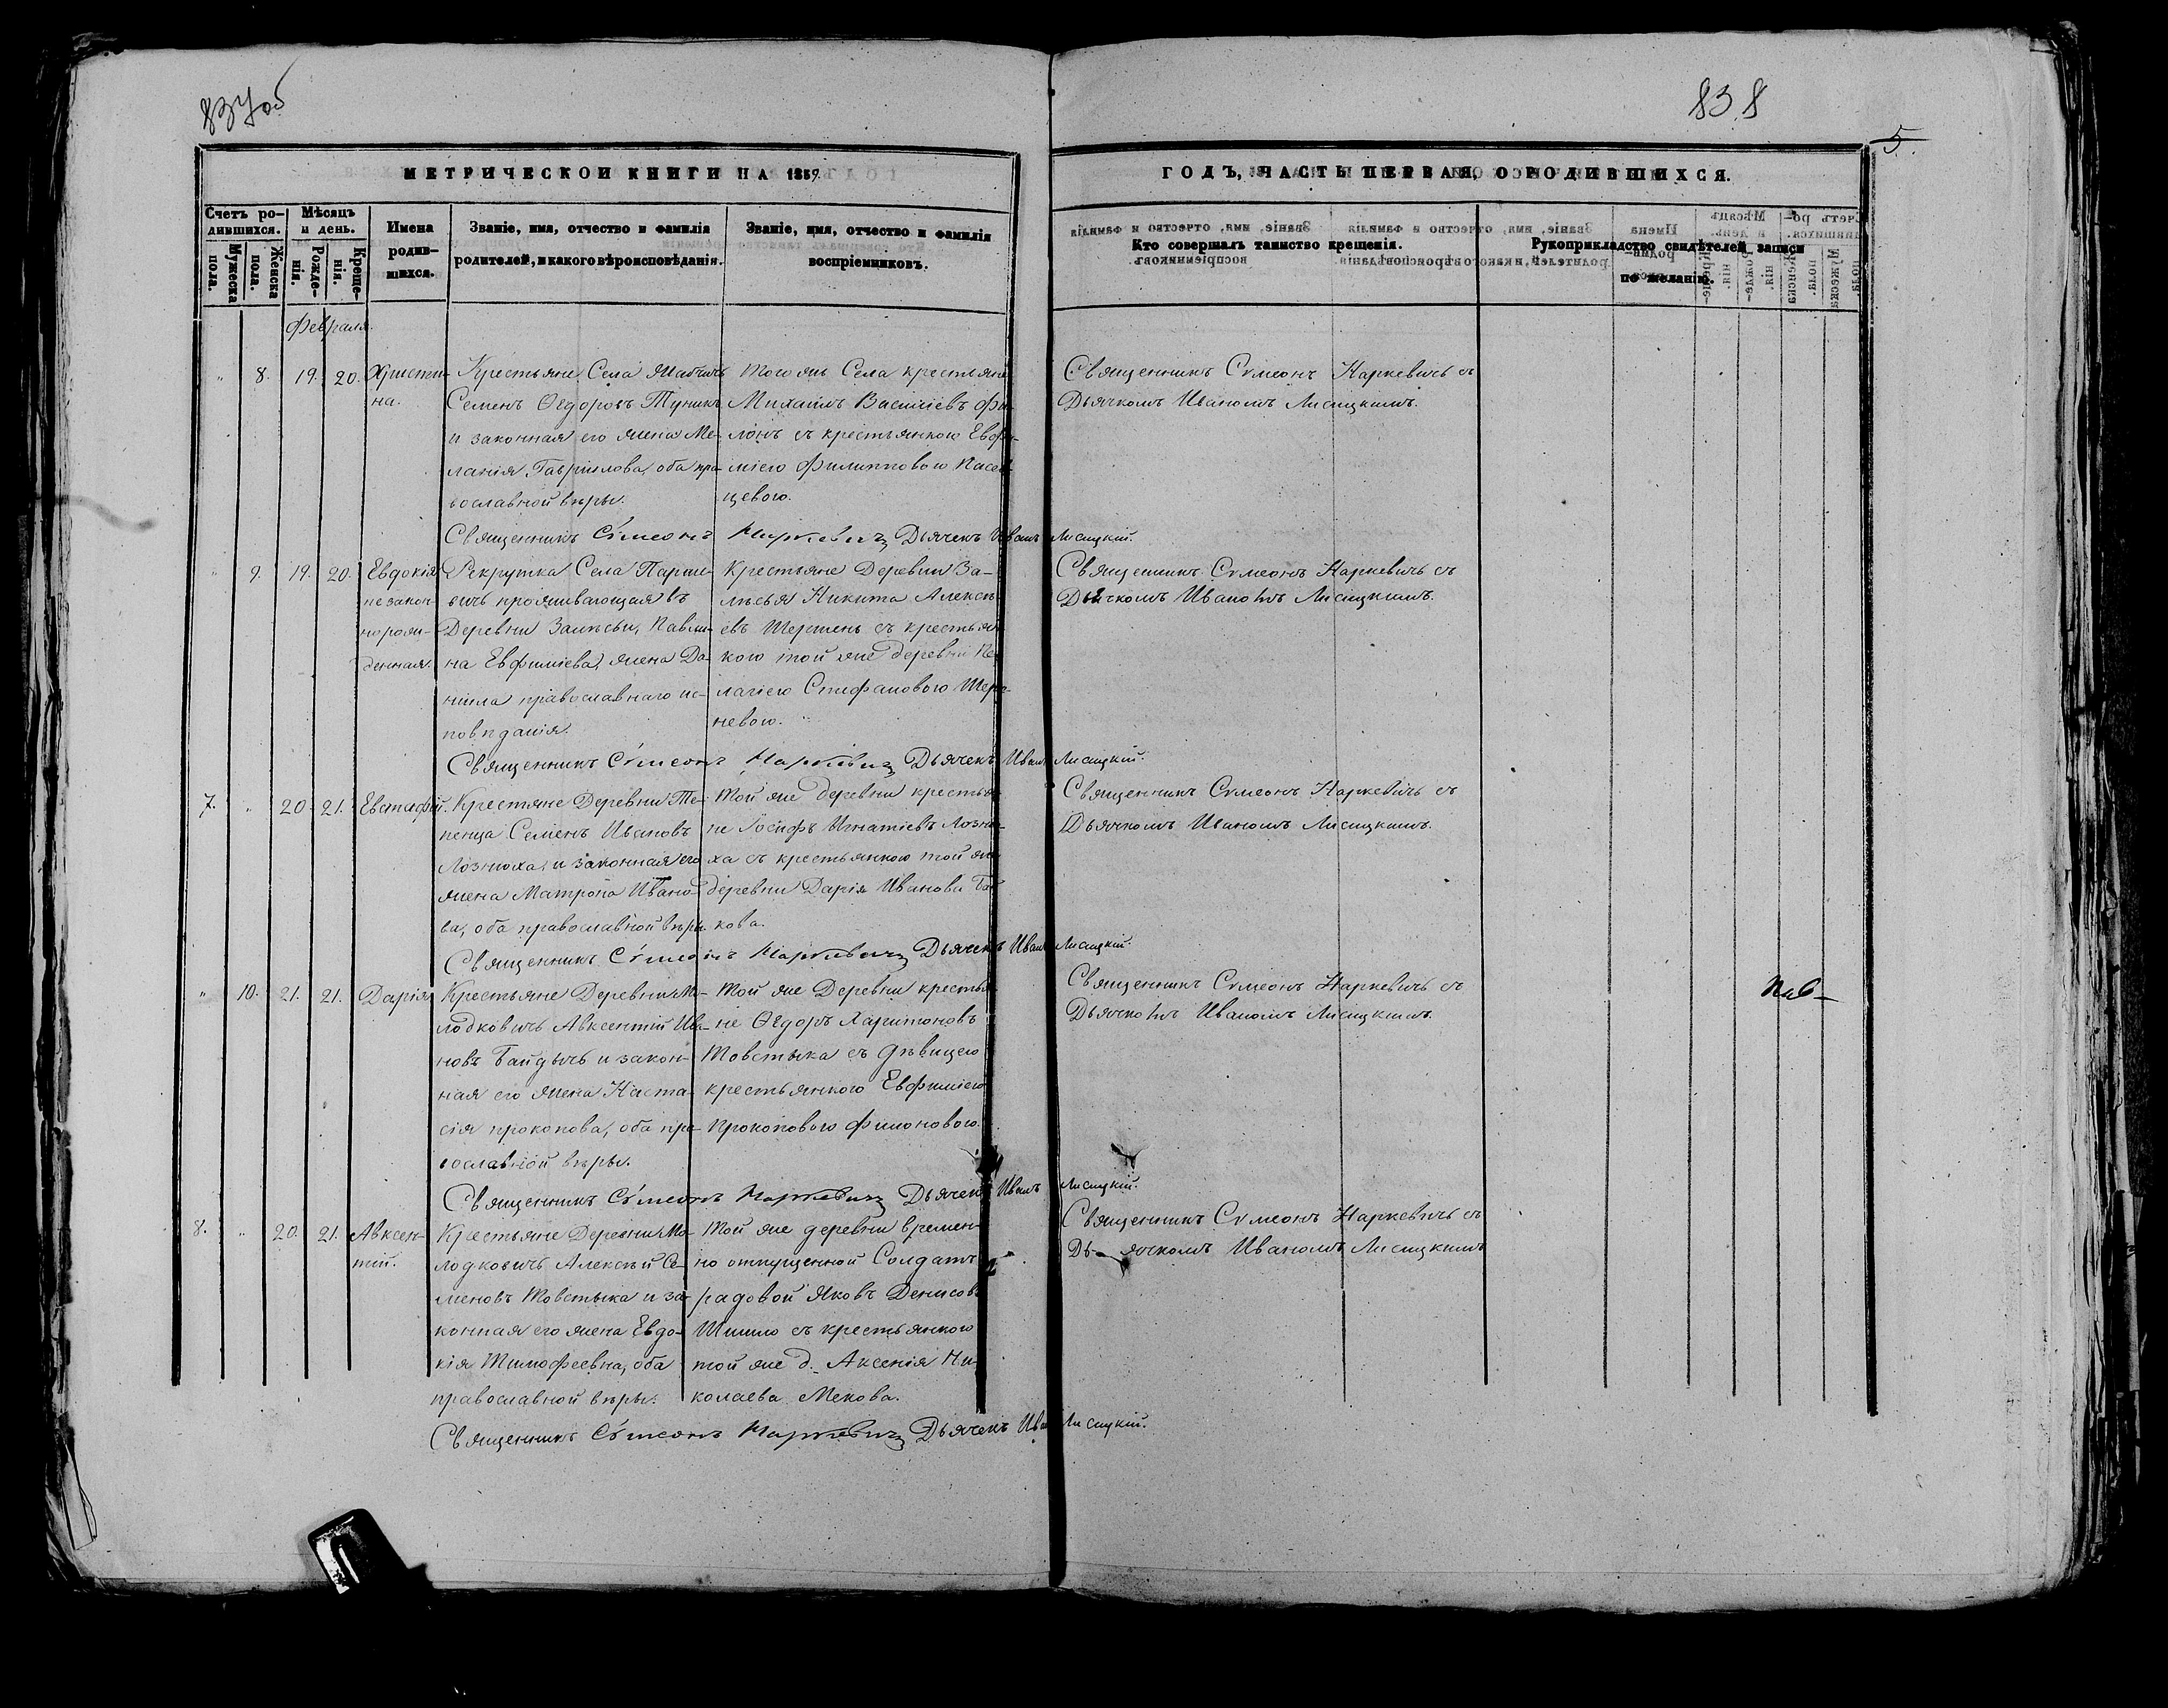 837об
838
5.
МЕТРИЧЕСКОЙ КНИГИ НА 1859.
ГОДЪ, ЧАСТЬ ПЕРВАЯ, О РОДИВШИХСЯ.
Счетъ ро-
дившихся.
Мужеска
пола.
Женска
пола.
Мѣсяцъ
и день.
Рожде-
нія.
Креще-
нія.
Имена
родив-
шихся.
Званіе, имя, отчество и фамилія
родителей, и какого вѣроисповѣданія.
Званіе, имя, отчество и фамилія
воспріемниковъ.
Кто совершалъ таинство крещенія.
Рукоприкладство свидѣтелей записи
по желанію.
Февраля.
" 8. 19. 20. Христи-
на.
Крестьяне Села
Семенъ Ѳедоровъ Туникъ
и законная его жена Ме-
ланія Гаврилова, оба пра-
вославной вѣры.
того же Села крестьяне
Михаилъ Василіевъ Фи-
лонъ съ крестьянкою Евфи-
міею Филипповою
цевою.
Священникъ Сѵмеонъ Наркевичъ съ
Дьячкомъ Иваномъ Лисицкимъ.
Священникъ Сѵмеонъ Наркевичъ Дьячекъ Иванъ Лисицкій.
" 9. 19. 20. Евдокія
незакон-
норож-
денная.
Рекрутка Села
проживающая въ
Деревни Залѣсьи, Павли-
на Евфиміева, жена Да-
ніила православнаго ис-
повѣданія.
Крестьяне Деревни За-
лѣсья Никита Алексѣ-
евъ Шершень съ крестьян-
кою той же деревни Пе-
лагіею Стефановою Шерш-
невою.
Священникъ Сѵмеонъ Наркевичъ съ
Дьячкомъ Иваномъ Лисицкимъ.
Священникъ Сѵмеонъ Наркевичъ Дьячекъ Иванъ Лисицкій.
7. " 20. 21. Евстафій.
Крестьяне Деревни Те-
пенца Семенъ Ивановъ
Лознюха, и законная его
жена Матрона Ивано-
ва, оба православной вѣры.
той же деревни крестья-
не Іосифъ Игнатіевъ Лозню-
ха съ крестьянкою той же
деревни Дарія Иванова
кова.
Священникъ Сѵмеонъ Наркевичъ съ
Дьячкомъ Иваномъ Лисицкимъ.
Священникъ Сѵмеонъ Наркевичъ Дьячекъ Иванъ Лисицкій.
" 10. 21. 21. Дарія
Крестьяне Деревни Мо-
лодковичъ Авксентій Ива-
новъ Байдычъ и закон-
ная его жена Наста-
сія прокопова, оба пра-
вославной вѣры.
той же Деревни крестья-
не Ѳедоръ Харитоновъ
Товстыка съ дѣвицею
крестьянкою Евфиміею
Прокоповою Филоновою.
Священникъ Сѵмеонъ Наркевичъ съ
Дьячкомъ Иваномъ Лисицкимъ.
Священникъ Сѵмеонъ Наркевичъ Дьячекъ Иванъ Лисицкій.
8. " 20. 21. Авксен-
тій.
Крестьяне Деревни Мо-
лодковичъ Алексѣй Се-
меновъ Товстыка и за-
конная его жена Евдо-
кія Тимофеевна, оба
православной вѣры.
той же деревни времен-
но отпущенной Солдатъ
радовой Яковъ Денисовъ
Шишло съ крестьянкою
той же д. Аксенія Ни-
колаева Мекова.
Священникъ Сѵмеонъ Наркевичъ съ
Дьячкомъ Иваномъ Лисицкимъ
Священникъ Сѵмеонъ Наркевичъ Дьячекъ Иванъ Лисицкій.